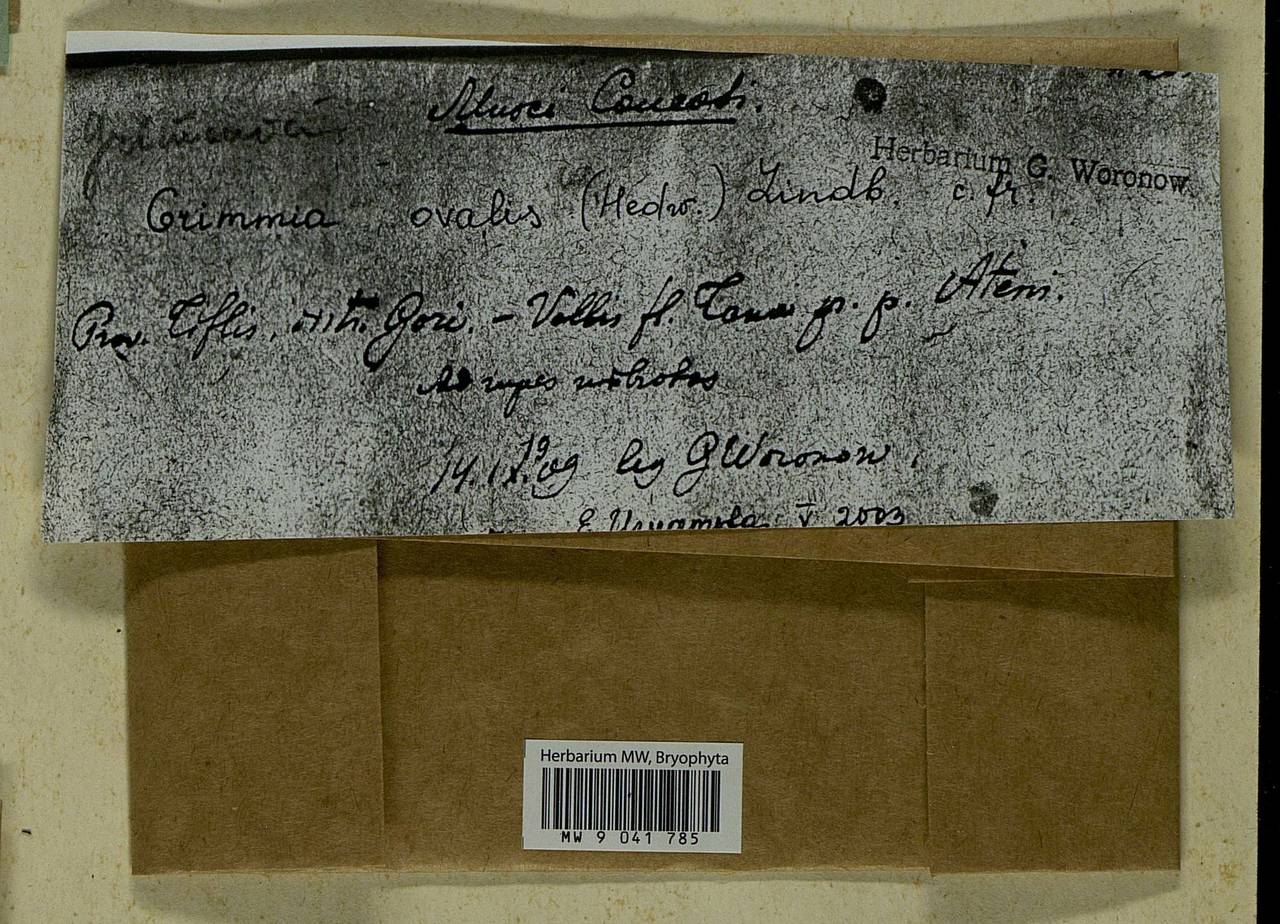 Musci Caucas.
Herbarium G. Woronow.
Grimmia ovalis (Hedw.) Lindb. c. fr.
Prov. Tiflis, distr. Gori. - Vallis fl. Tana pr. p. Ateni.
Ad rupes
14.IX.1909 leg GWoronow.
V 2003
Herbarium MW, Bryophyta
MW 9 041 785